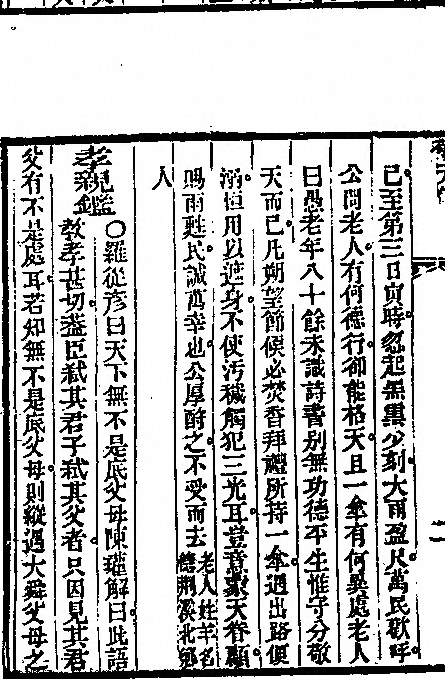 已至第三日寅時忽起無黑少刻大雨盈尺萬民歡呼
公問老人有何德行卻能格天且一傘有何異處老人
曰愚老年八十餘未識詩書别無功德平生惟守分敬
天而已凡朔望節候必焚香拜禮所持一傘遇出路便
溺恒用以遮身不使汚穢觸犯三光耳豈意蒙天眷顧
賜雨甦民誠萬幸也公厚酧之不受而去老人姓羊名德荆溪北鄉
人
孝親鑑
○羅從彦曰天下無不是底父母陳瓘解曰此語
敎孝甚切蓋臣弑其君子弑其父者只因見其君
父有不是處耳若知無不是底父母則縱遇大舜父母之